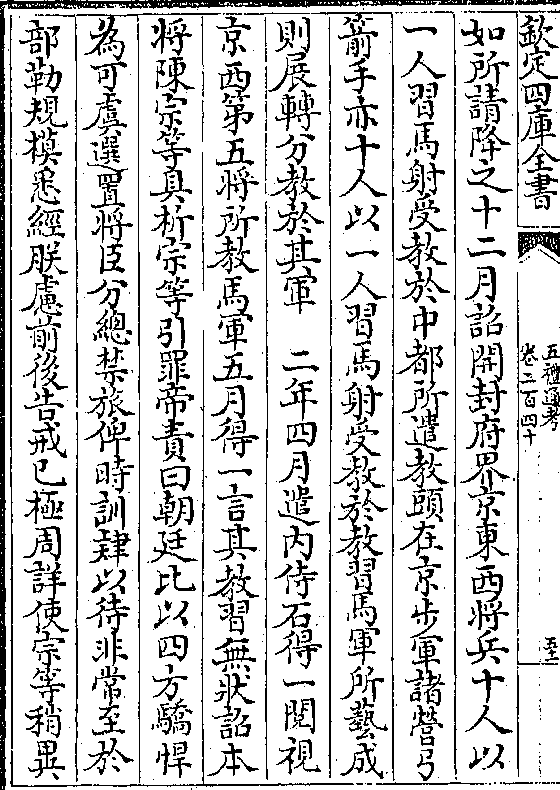 欽定四庫全書
五禮通考
卷二百四十
如所請降之十二月詔開封府界京東西將兵十人以
一人習馬射受教於中都所遣教頭在京步軍諸營弓
箭手亦十人以一人習馬射受教於教習馬軍所藝成
則展轉分教於其軍　二年四月遣內侍石得一閱視
京西第五將所教馬軍五月得一言其教習無狀詔本
將陳宗等具析宗等引罪帝責曰朝廷比以四方驕悍
為可虞選置將臣分總禁旅俾時訓肄以待非常至於
部勒規模悉經朕慮前後告戒已極周詳使宗等稍異